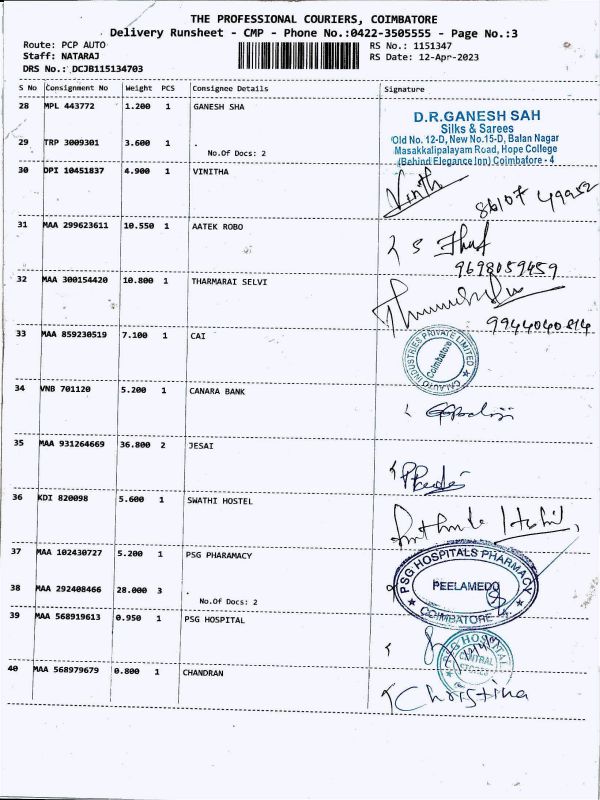 THE PROFESSIONAL COURIERS, COIMBATORE
Delivery Runsheet - CMP - Phone No.:0422-3505555 - Page No.:3
Route: PCP AUTO RS No.: 1151347
Staff: NATARAJ RS Date: 12-Apr-2023
DRS No.: DCJB115134703
S No Consignment No Weight PCS Consignee Details Signature
28 MPL 443772 1.200 1 GANESH SHA
D.R.GANESH SAH
Silks & Sarees
Old No. 12-D, New No.15-D, Balan Nagar
Masakkalipalayam Road, Hope College
(Behind Elegance Inn) Coimbatore - 4
29 TRP 3009301 3.600 1 .
No.Of Docs: 2
30 DPI 10451837 4.900 1 VINITHA
Vinith
86107 49952
31 MAA 299623611 10.550 1 AATEK ROBO
9698059459
32 MAA 300154420 10.800 1 THARMARAI SELVI
9944040814
33 MAA 859230519 7.100 1 CAI
CAI AUTO INDUSTRIES PRIVATE LIMITED
Coimbatore
34 VNB 701120 5.200 1 CANARA BANK
35 MAA 931264669 36.800 2 JESAI
36 KDI 820098 5.600 1 SWATHI HOSTEL
37 MAA 102430727 5.200 1 PSG PHARAMACY
PSG HOSPITALS PHARMACY
PEELAMEDU
COIMBATORE
38 MAA 292408466 28.000 3 .
No.Of Docs: 2
39 MAA 568919613 0.950 1 PSG HOSPITAL
PSG HOSPITAL
CENTRAL
STORES
40 MAA 568979679 0.800 1 CHANDRAN
Christina